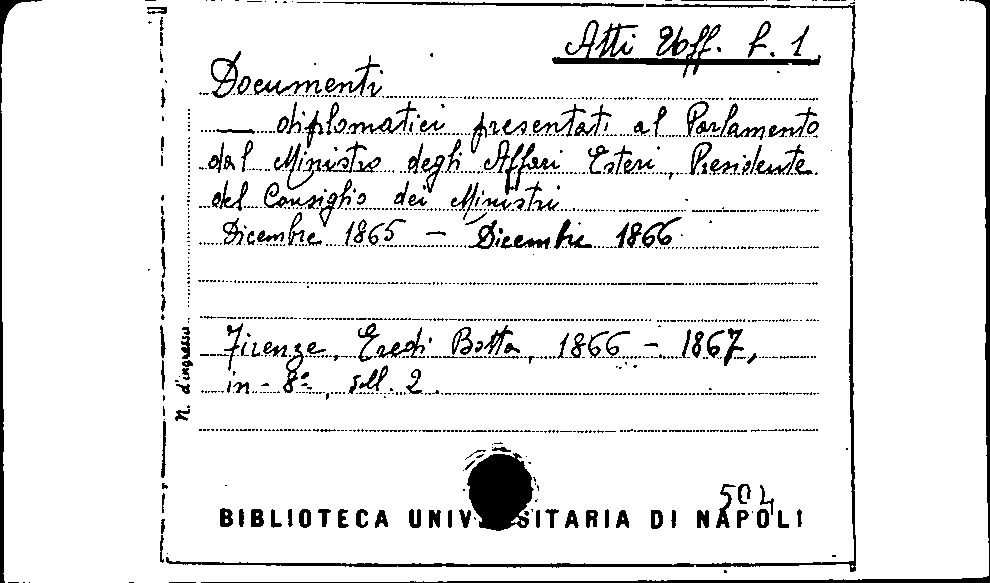 Atti Uff. f. 1
Documenti
— diplomatici presentati al Parlamento
dal Ministro degli Affari Esteri, Presidente
del Consiglio dei Ministri
Dicembre 1865 – Dicembre 1866
Firenze, Eredi Botta, 1866 – 1867,
in-8º, voll. 2.
N. d'ingresso
504
BIBLIOTECA UNIV SITARIA DI NAPOLI